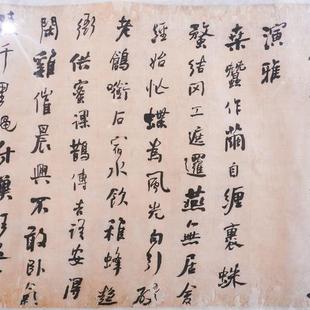 演雅
桑蠶作繭自纏裹蛛
蝥結网工遮邏燕無居舍
經始忙蝶為風光勾引破
老鶬銜石宿水飲稚蜂趨
衙供蜜課鵲傳吉語安得
閑雞催晨興不敢臥氣
千里